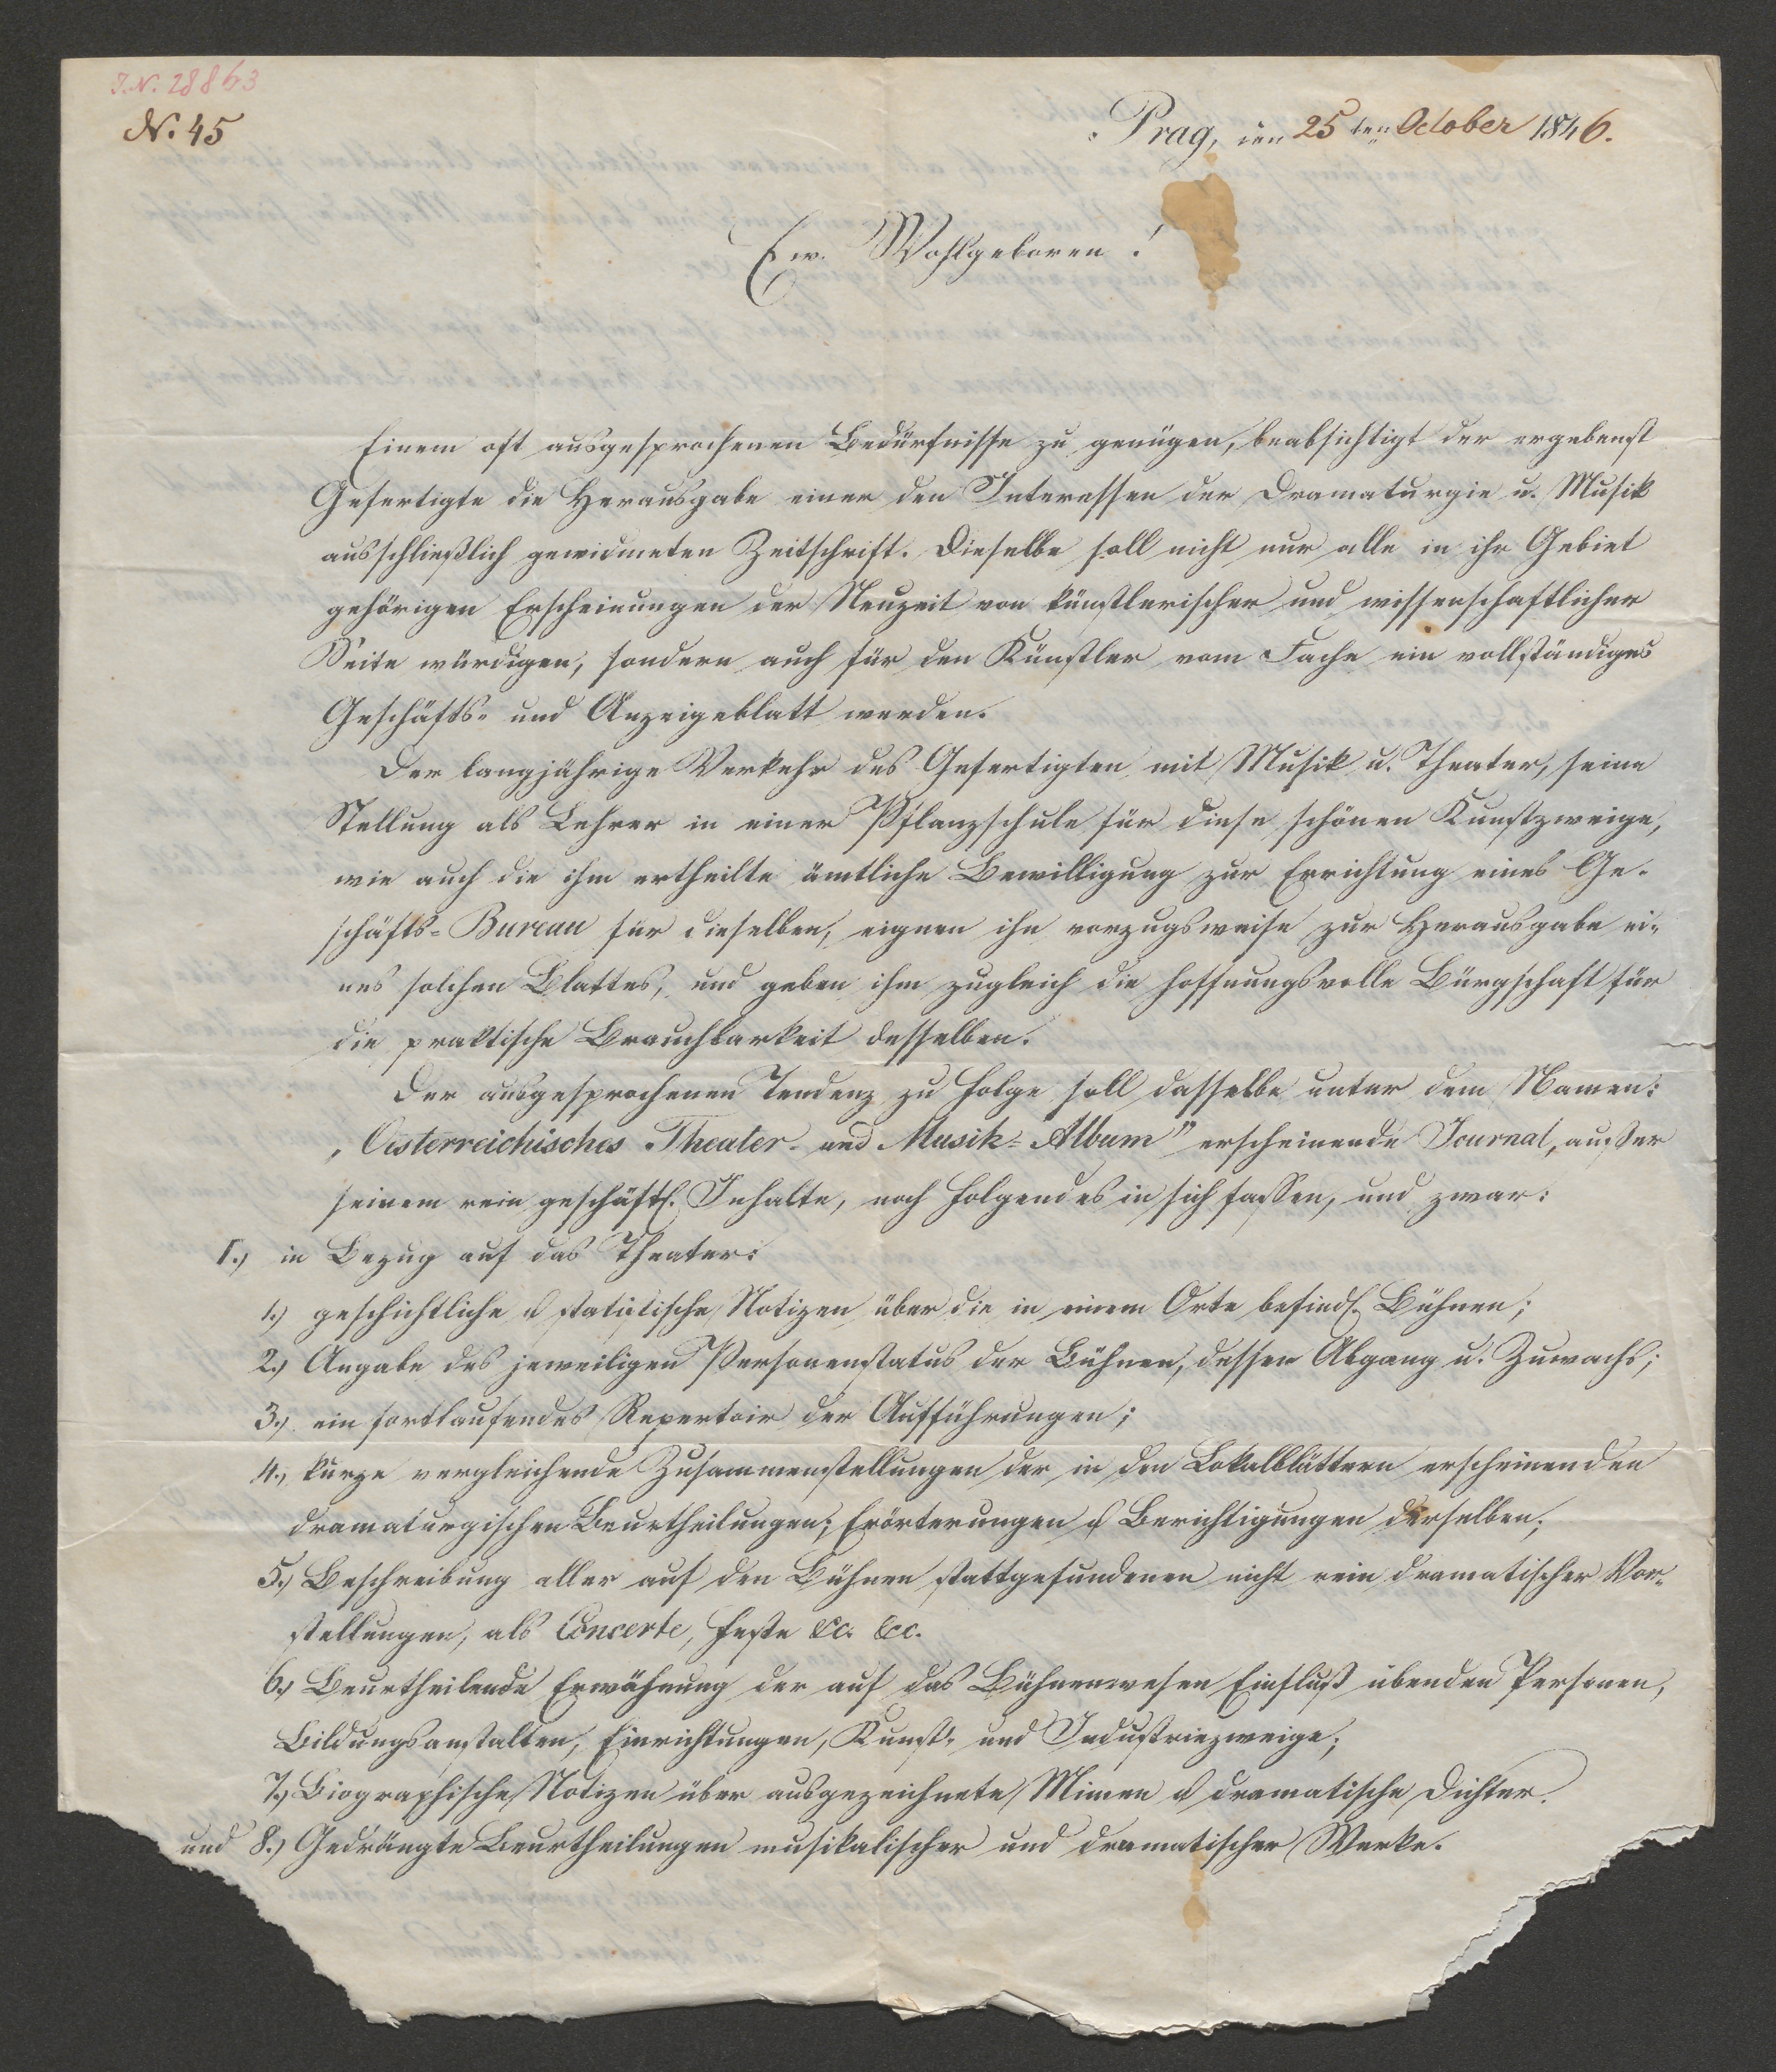 I.N. 28863
N. 45
Prag, den 25ten October 1846.
Ew. Wohlgeboren!
Einem oft ausgesprochenen Bedürfnisse zu genügen, beabsichtigt der ergebenst
Gefertigte die Herausgabe einer den Interessen der Dramaturgie u. Musik
ausschließlich gewidmeten Zeitschrift. Dieselbe soll nicht nur alle in ihr Gebiet
gehörigen Erscheinungen der Neuzeit von künstlerischer und wissenschaftlicher
Seite würdigen, sondern auch für den Künstler vom Fache ein vollständiges
Geschäfts- und Anzeigeblatt werden.
Der langjährige Verkehr des Gefertigten mit Musik u. Theater, seine
Stellung als Lehrer in einer Pflanzschule für diese schönen Kunstzweige,
wie auch die ihm ertheilte ämtliche Bewilligung zur Errichtung eines Ge-
schäfts-Bureau für dieselben, eignen ihn vorzugsweise zur Herausgabe ei-
nes solchen Blattes, und geben ihm zugleich die hoffnungsvolle Bürgschaft für
die praktische Brauchbarkeit desselben.
Der ausgesprochenen Tendenz zu Folge soll dasselbe unter dem Namen:
„Oesterreichisches Theater- und Musik-Album" erscheinende Journal, außer
seinem rein geschäftl. Inhalte, noch Folgendes in sich fassen, und zwar:
I.) in Bezug auf das Theater:
1.) geschichtliche & statistische Notizen über die in einem Orte befindl. Bühnen;
2.) Angabe des jeweiligen Personenstatus der Bühnen, dessen Abgang u. Zuwachs;
3.) ein fortlaufendes Repertoir der Aufführungen;
4.) kurze vergleichende Zusammenstellungen der in den Lokalblättern erscheinenden
dramaturgischen Beurtheilungen; Erörterungen & Berichtigungen derselben;
5.) Beschreibung aller auf den Bühnen stattgefundenen nicht rein dramatischer Vor-
stellungen, als Concerte, Feste &c. &c.
6.) Beurtheilende Erwähnung der auf das Bühnenwesen Einfluß übenden Personen,
Bildungsanstalten, Einrichtungen, Kunst- und Industriezweige;
7.) Biographische Notizen über ausgezeichnete Mimen & dramatische Dichter.
und 8.) Gedrängte Beurtheilungen musikalischer und dramatischer Werke.